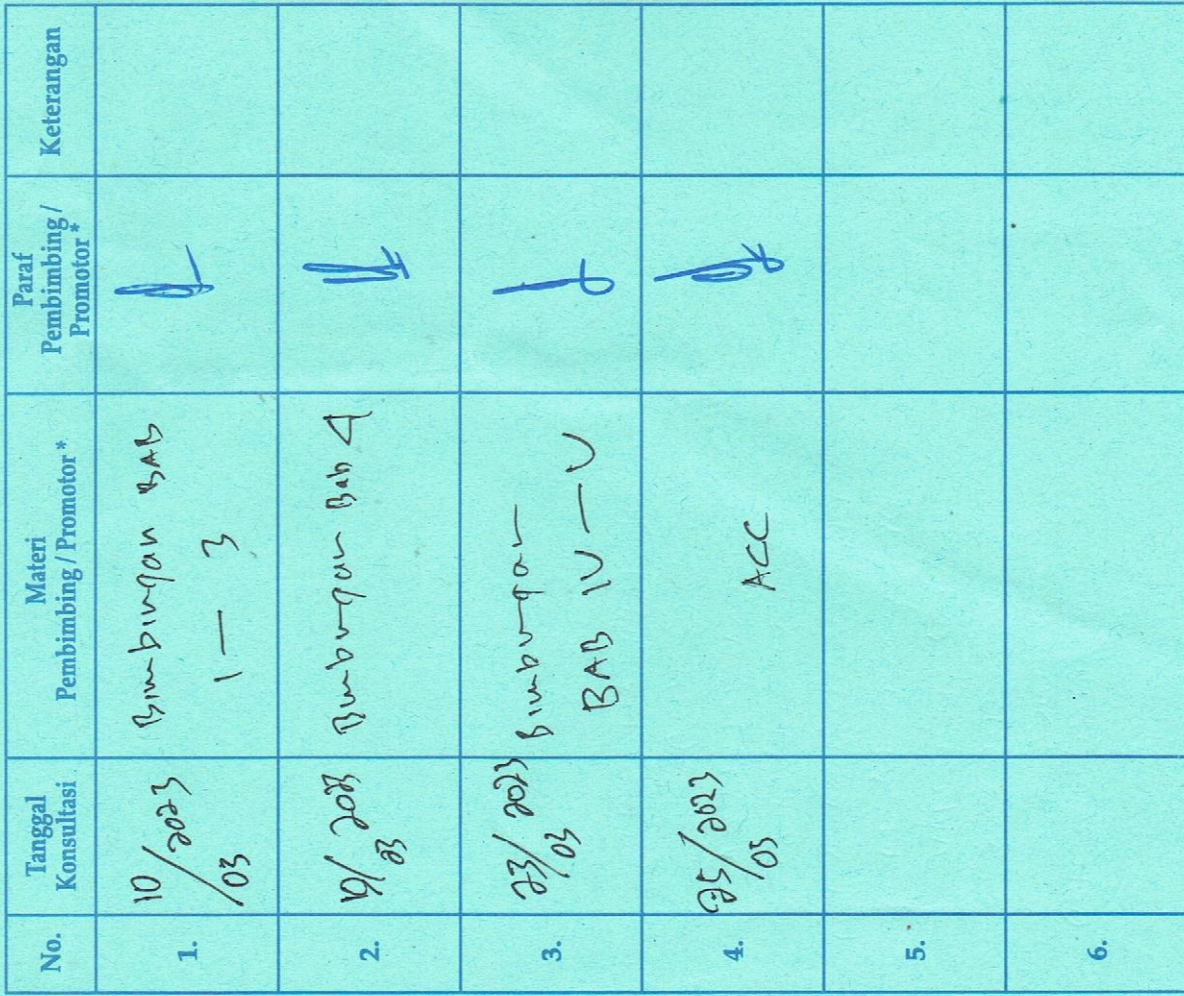 No.
Tanggal
Konsultasi
Materi
Pembimbing / Promotor *
Paraf
Pembimbing /
Promotor *
Keterangan
1.
10/2023
/03
Bimbingan BAB
1 — 3
2.
19/2023
03
Bimbingan Bab 4
3.
23/2023
03
Bimbingan
BAB IV — V
4.
25/2023
05
ACC
5.
6.